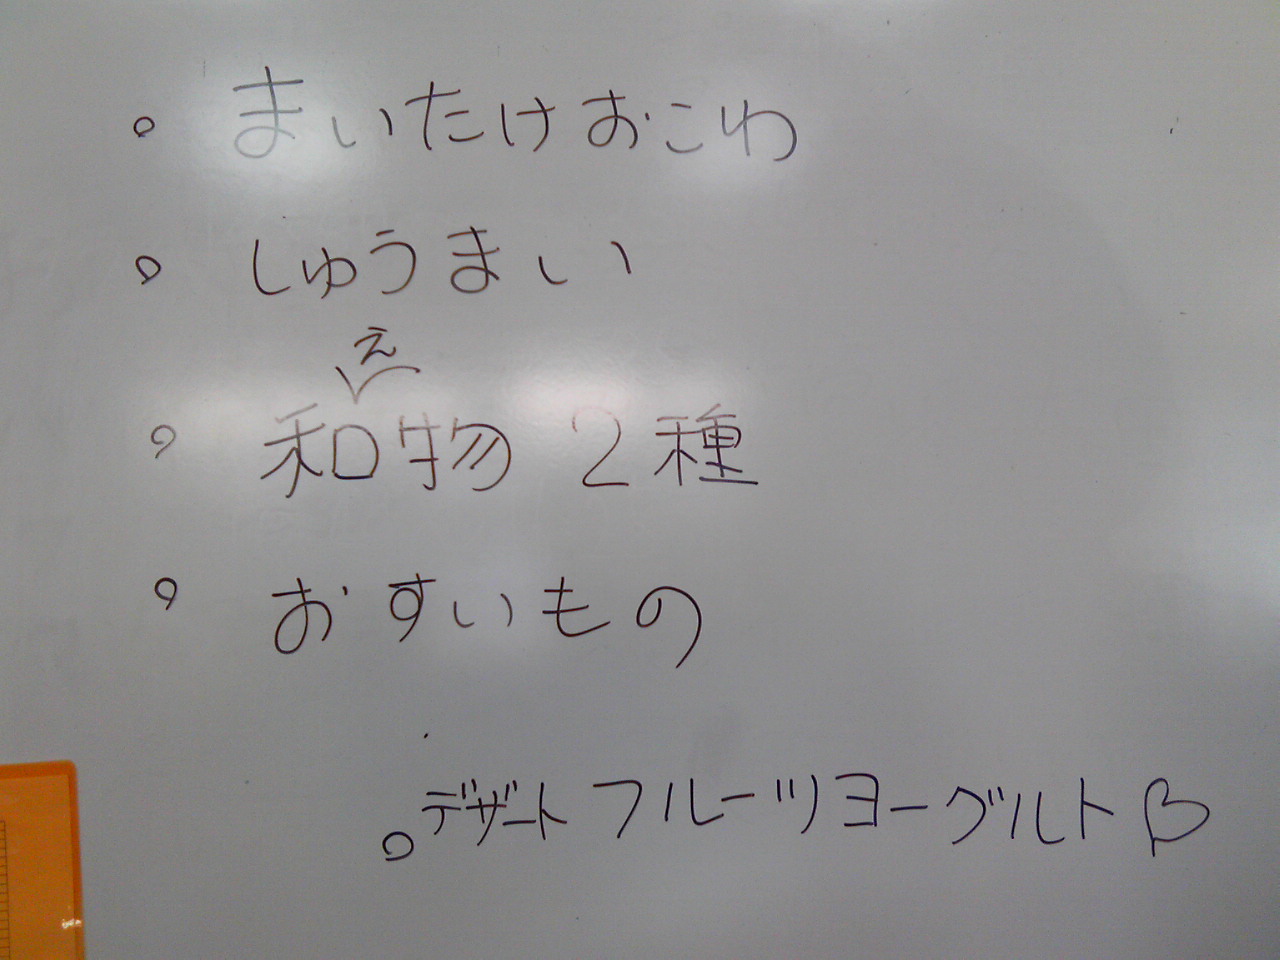 。まいたけおこわ
。しゅうまい
。和え物 2種
。おすいもの
。デザート フルーツヨーグルト♡